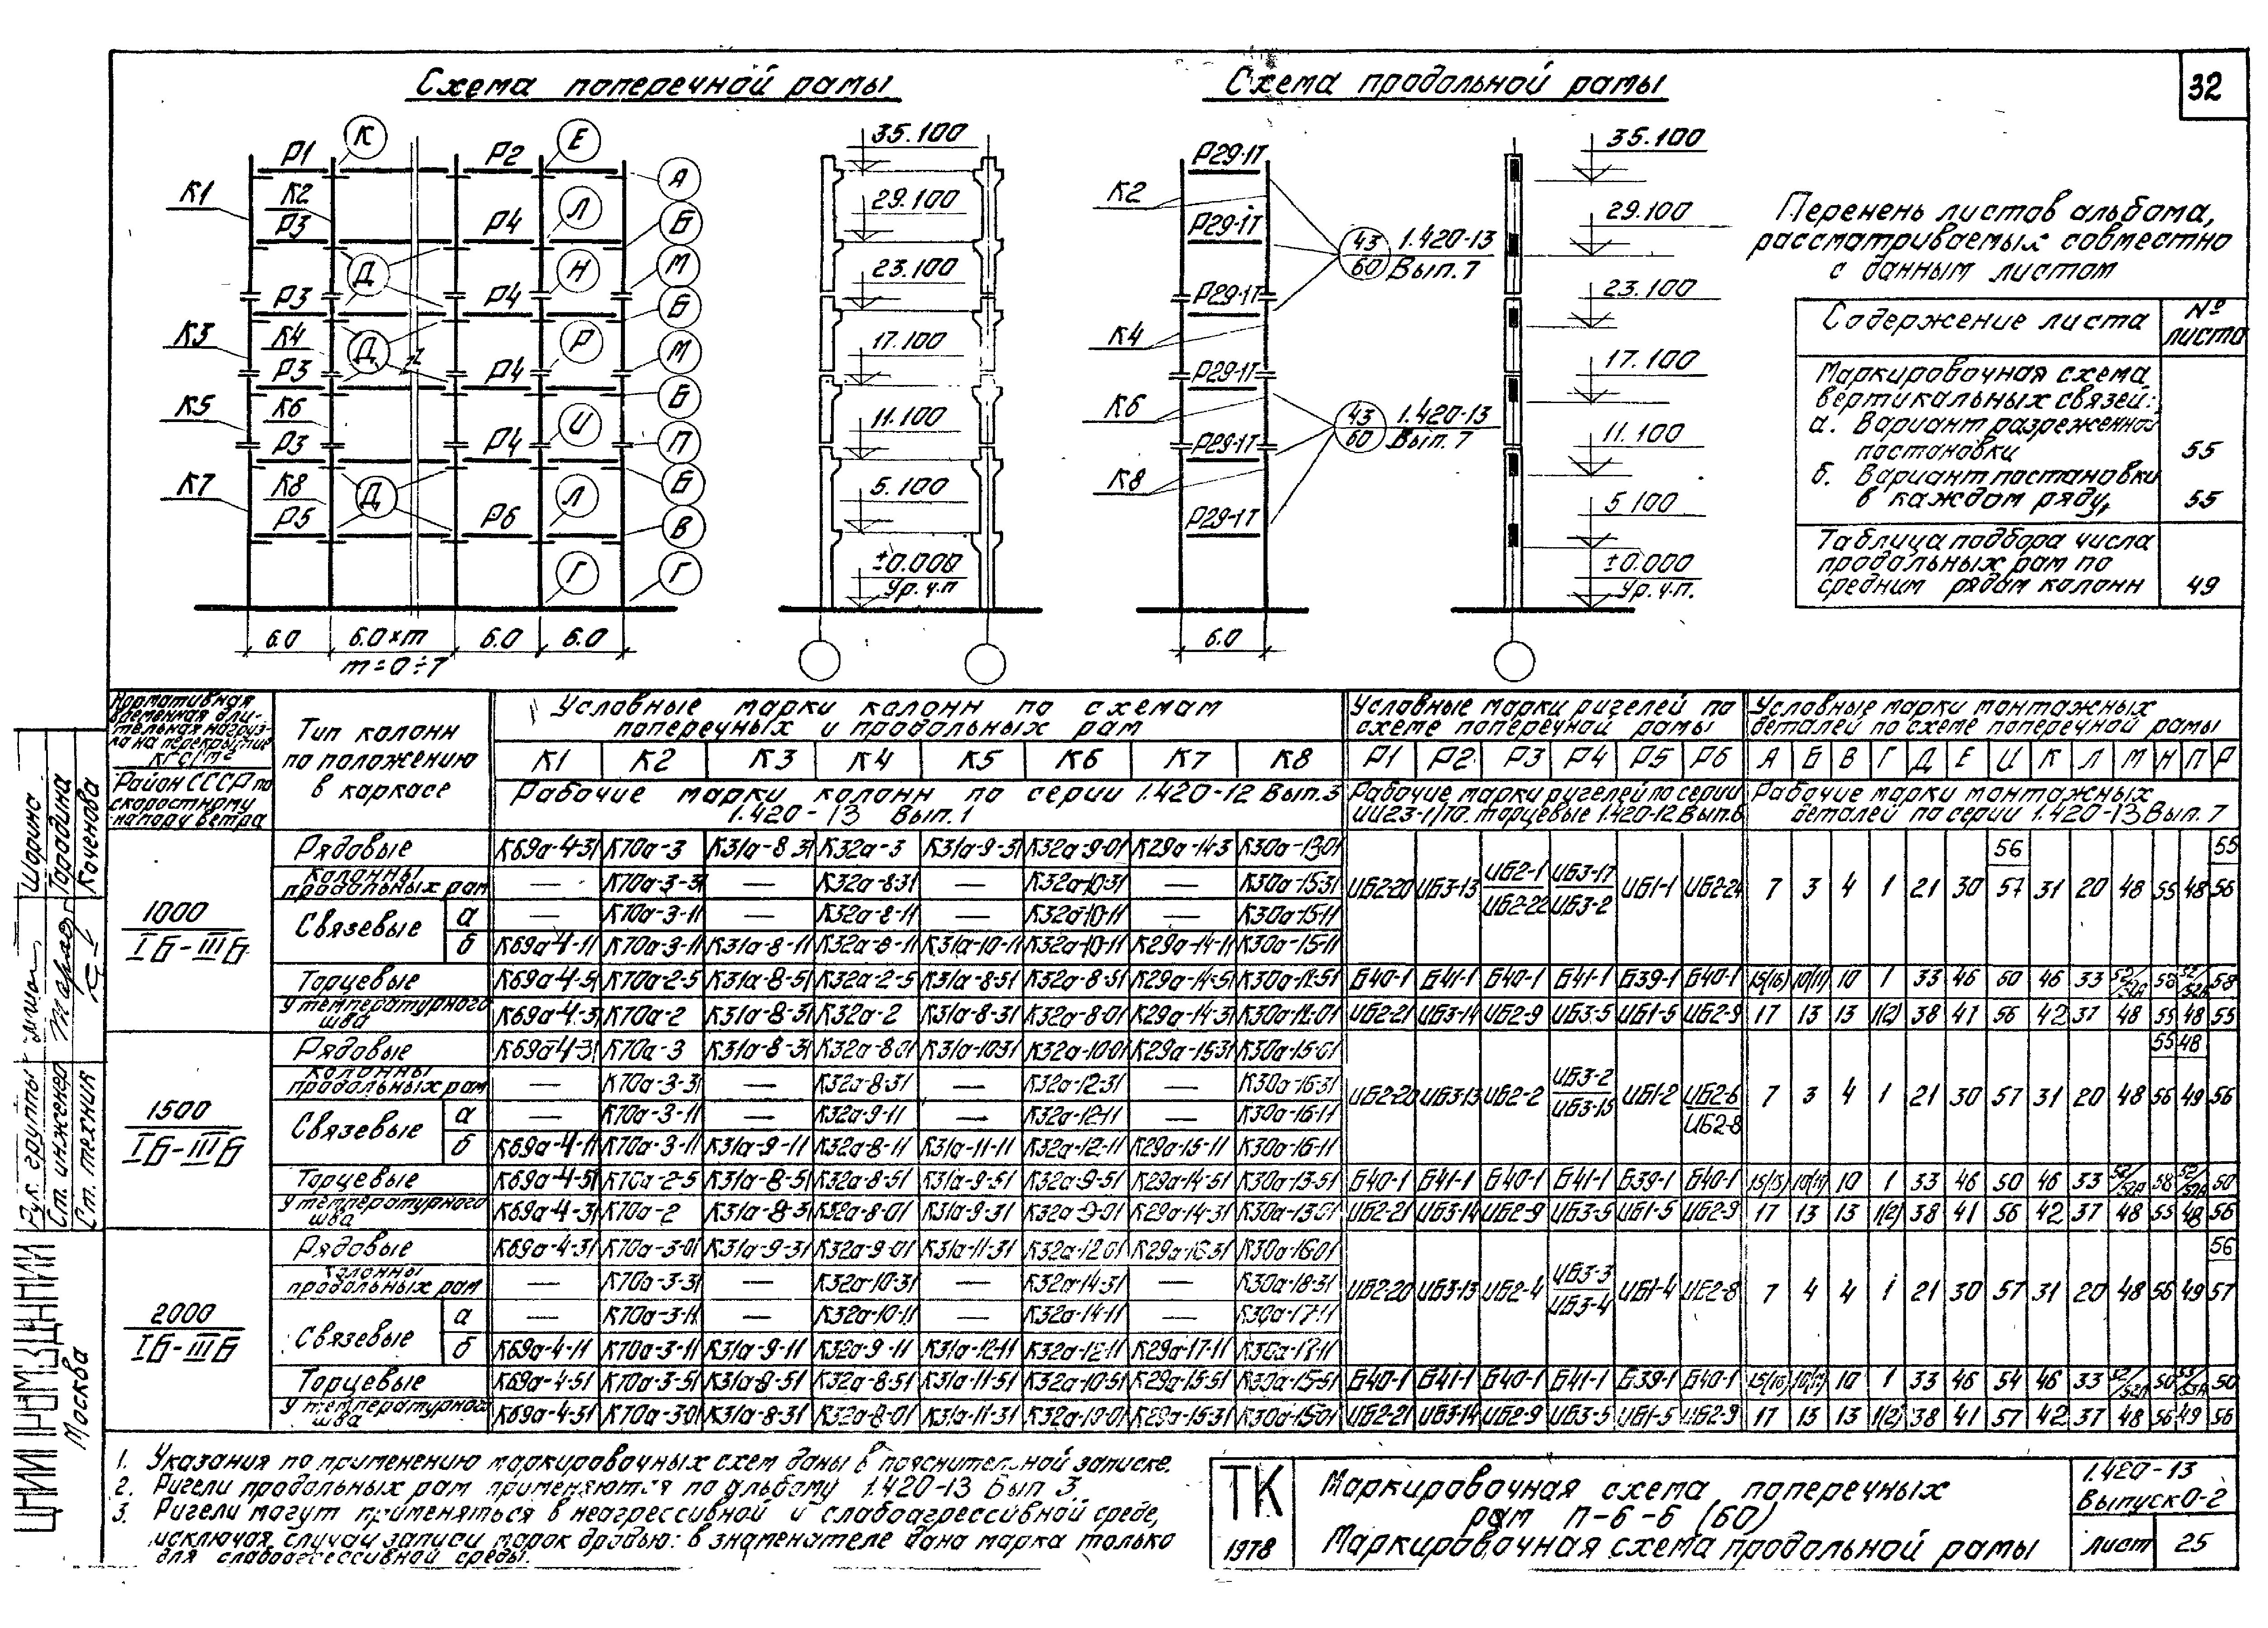 32
Схема поперечной рамы
Схема продольной рамы
К Е А Л Б Д Н М Б Д Р М Б И П Д Л Б В Г Г
Р1 Р2
К1 К2
Р3 Р4
Р3 Р4
К3 К4
Р3 Р4
К5 К6
Р3 Р4
К7 К8
Р5 Р6
6.0 6.0×m 6.0 6.0
m=0÷7
35.100
29.100
23.100
17.100
11.100
5.100
±0.000
Ур.ч.п
Р29-1Т
К2
Р29-1Т
43/60 1.420-13 Вып.7
Р29-1Т
К4
Р29-1Т
К6
43/60 1.420-13 Вып.7
Р29-1Т
К8
Р29-1Т
6.0
35.100
29.100
23.100
17.100
11.100
5.100
±0.000
Ур.ч.п.
Перенень листов альбома,
рассматриваемых совместно
с данным листом
Содержение листа № листа
Маркировочная схема
вертикальных связей:
а. Вариант разреженной
постановки 55
б. Вариант постановки
в каждом ряду, 55
Таблица подбора числа
продольных рам по
средним рядам колонн 49
Нормативная временная длительная нагрузка на перекрытие кгс/м²
Район СССР по скоростному напору ветра
Тип колонн по положению в каркасе
Условные марки колонн по схемам поперечных и продольных рам
Условные марки ригелей по схеме поперечной рамы
Условные марки монтажных деталей по схеме поперечной рамы
К1 К2 К3 К4 К5 К6 К7 К8 Р1 Р2 Р3 Р4 Р5 Р6 А Б В Г Д Е И К Л М Н П Р
Рабочие марки колонн по серии 1.420-12 Вып.3 1.420-13 Вып.1
Рабочие марки ригелей по серии ИИ23-1/70. Торцевые 1.420-12 Вып.6
Рабочие марки монтажных деталей по серии 1.420-13 Вып.7
1000
IБ-IIIБ
Рядовые К69а-4-31 К70а-3 К31а-8-31 К32а-3 К31а-9-31 К32а-9-01 К29а-14-3 К30а-13-01
Колонны продольных рам — К70а-3-31 — К32а-8-31 — К32а-10-31 — К30а-15-31
Связевые а — К70а-3-11 — К32а-8-11 — К32а-10-11 — К30а-15-11
б К69а-4-11 К70а-3-11 К31а-8-11 К32а-8-11 К31а-10-11 К32а-10-11 К29а-14-11 К30а-15-11
ИБ2-20 ИБ3-13 ИБ2-1/ИБ2-22 ИБ3-17/ИБ3-2 ИБ1-1 ИБ2-24 7 3 4 1 21 30 56/57 31 20 48 55 48 55/56
Торцевые К69а-4-51 К70а-2-5 К31а-8-51 К32а-2-5 К31а-8-51 К32а-8-51 К29а-14-51 К30а-12-51 Б40-1 Б41-1 Б40-1 Б41-1 Б39-1 Б40-1 15(16) 10(11) 10 1 33 46 60 46 33 52/52А 58 52/52А 58
У температурного шва К69а-4-31 К70а-2 К31а-8-31 К32а-2 К31а-8-31 К32а-8-01 К29а-14-31 К30а-12-01 ИБ2-21 ИБ3-14 ИБ2-9 ИБ3-5 ИБ1-5 ИБ2-9 17 13 13 1(2) 38 41 56 42 37 48 55 48 55
1500
IБ-IIIБ
Рядовые К69а-4-31 К70а-3 К31а-8-31 К32а-8-01 К31а-10-31 К32а-10-01 К29а-15-31 К30а-15-01
Колонны продольных рам — К70а-3-31 — К32а-8-31 — К32а-12-31 — К30а-16-31
Связевые а — К70а-3-11 — К32а-9-11 — К32а-12-11 — К30а-16-11
б К69а-4-11 К70а-3-11 К31а-9-11 К32а-8-11 К31а-11-11 К32а-12-11 К29а-15-11 К30а-16-11
ИБ2-20 ИБ3-13 ИБ2-2 ИБ3-2/ИБ3-15 ИБ1-2 ИБ2-6/ИБ2-8 7 3 4 1 21 30 57 31 20 48 55/56 48/49 56
Торцевые К69а-4-51 К70а-2-5 К31а-8-51 К32а-8-51 К31а-9-51 К32а-9-51 К29а-14-51 К30а-13-51 Б40-1 Б41-1 Б40-1 Б41-1 Б39-1 Б40-1 10 1 33 46 50 46 33 52/52А 58 52/52А 50
У температурного шва К69а-4-31 К70а-2 К31а-8-31 К32а-8-01 К31а-9-31 К32а-9-01 К29а-14-31 К30а-13-01 ИБ2-21 ИБ3-14 ИБ2-9 ИБ3-5 ИБ1-5 ИБ2-9 17 13 13 1(2) 38 41 56 42 37 48 55 48 56
2000
IБ-IIIБ
Рядовые К69а-4-31 К70а-3-01 К31а-9-31 К32а-9-01 К31а-11-31 К32а-12-01 К29а-16-31 К30а-16-01
Колонны продольных рам — К70а-3-31 — К32а-10-31 — К32а-14-31 — К30а-18-31
Связевые а — К70а-3-11 — К32а-10-11 — К32а-14-11 — К30а-17-11
б К69а-4-11 К70а-3-11 К31а-9-11 К32а-9-11 К31а-12-11 К32а-12-11 К29а-17-11 К30а-17-11
ИБ2-20 ИБ3-13 ИБ2-4 ИБ3-3/ИБ3-4 ИБ1-4 ИБ2-8 7 4 4 1 21 30 57 31 20 48 56 49 56/57
Торцевые К69а-4-51 К70а-3-51 К31а-8-51 К32а-8-51 К31а-11-51 К32а-10-51 К29а-15-51 К30а-15-51 Б40-1 Б41-1 Б40-1 Б41-1 Б39-1 Б40-1 10 1 33 46 54 46 33 52/52А 50 53/53А 50
У температурного шва К69а-4-31 К70а-3-01 К31а-8-31 К32а-8-01 К31а-11-31 К32а-10-01 К29а-15-31 К30а-15-01 ИБ2-21 ИБ3-14 ИБ2-9 ИБ3-5 ИБ1-5 ИБ2-9 17 13 13 1(2) 38 41 57 42 37 48 56 49 56
1. Указания по применению маркировочных схем даны в пояснительной записке.
2. Ригели продольных рам применяются по альбому 1.420-13 Вып 3.
3. Ригели могут применяться в неагрессивной и слабоагрессивной среде,
исключая случаи записи марок дробью: в знаменателе дана марка только
для слабоагрессивной среды.
ТК
1978
Маркировочная схема поперечных
рам П-6-6 (60)
Маркировочная схема продольной рамы
1.420-13
Выпуск 0-2
лист 25
ЦНИИПРОМЗДАНИЙ
Москва
Рук. группы Шарина
Ст. инженер Тарадина
Ст. техник Коченова